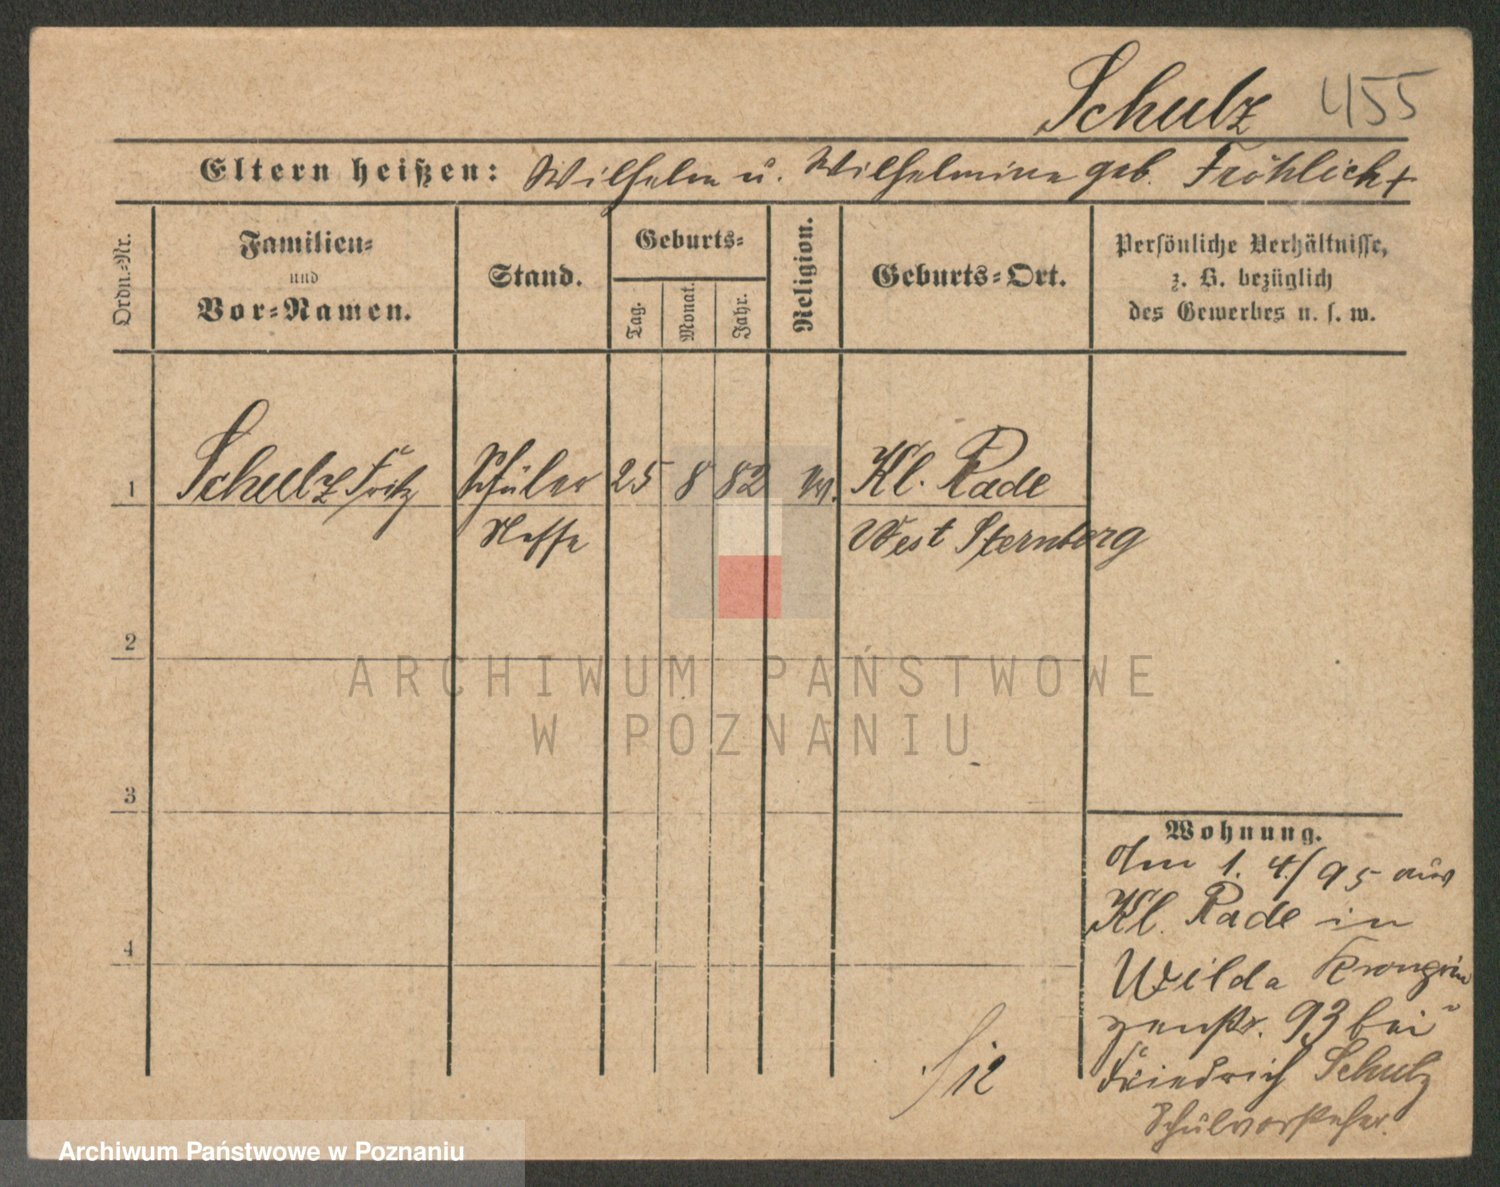 Schulz 455
Eltern heißen: Wilhelm u. Wilhelmine geb. Fröhlich +
Ordn.-Nr.
Familien-
und
Vor-Namen.
Stand.
Geburts-
Tag.
Monat.
Jahr.
Religion.
Geburts-Ort.
Persönliche Verhältnisse,
z. B. bezüglich
des Gewerbes u. s. w.
1 Schulz Fritz Schüler 25 8 82 Kl. Rade
Neffe West Sternberg
2
3
4
Wohnung.
Am 1. 4./95 aus
Kl. Rade in
Wilda Kronprin
zenstr. 93 bei
Friedrich Schulz
Schulvorsteher.
12
ARCHIWUM PAŃSTWOWE
W POZNANIU
Archiwum Państwowe w Poznaniu